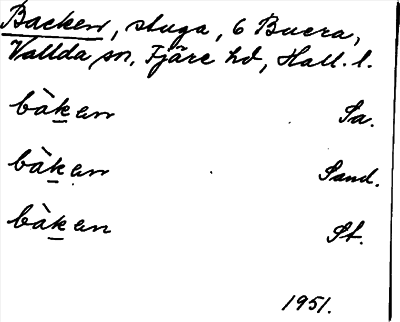 Backen, stuga, 6 Buera,
Vallda sn, Fjäre hd, Hall. l.
bàk̲an Sa.
bàk̲an Sand.
bàk̲an St.
1951.